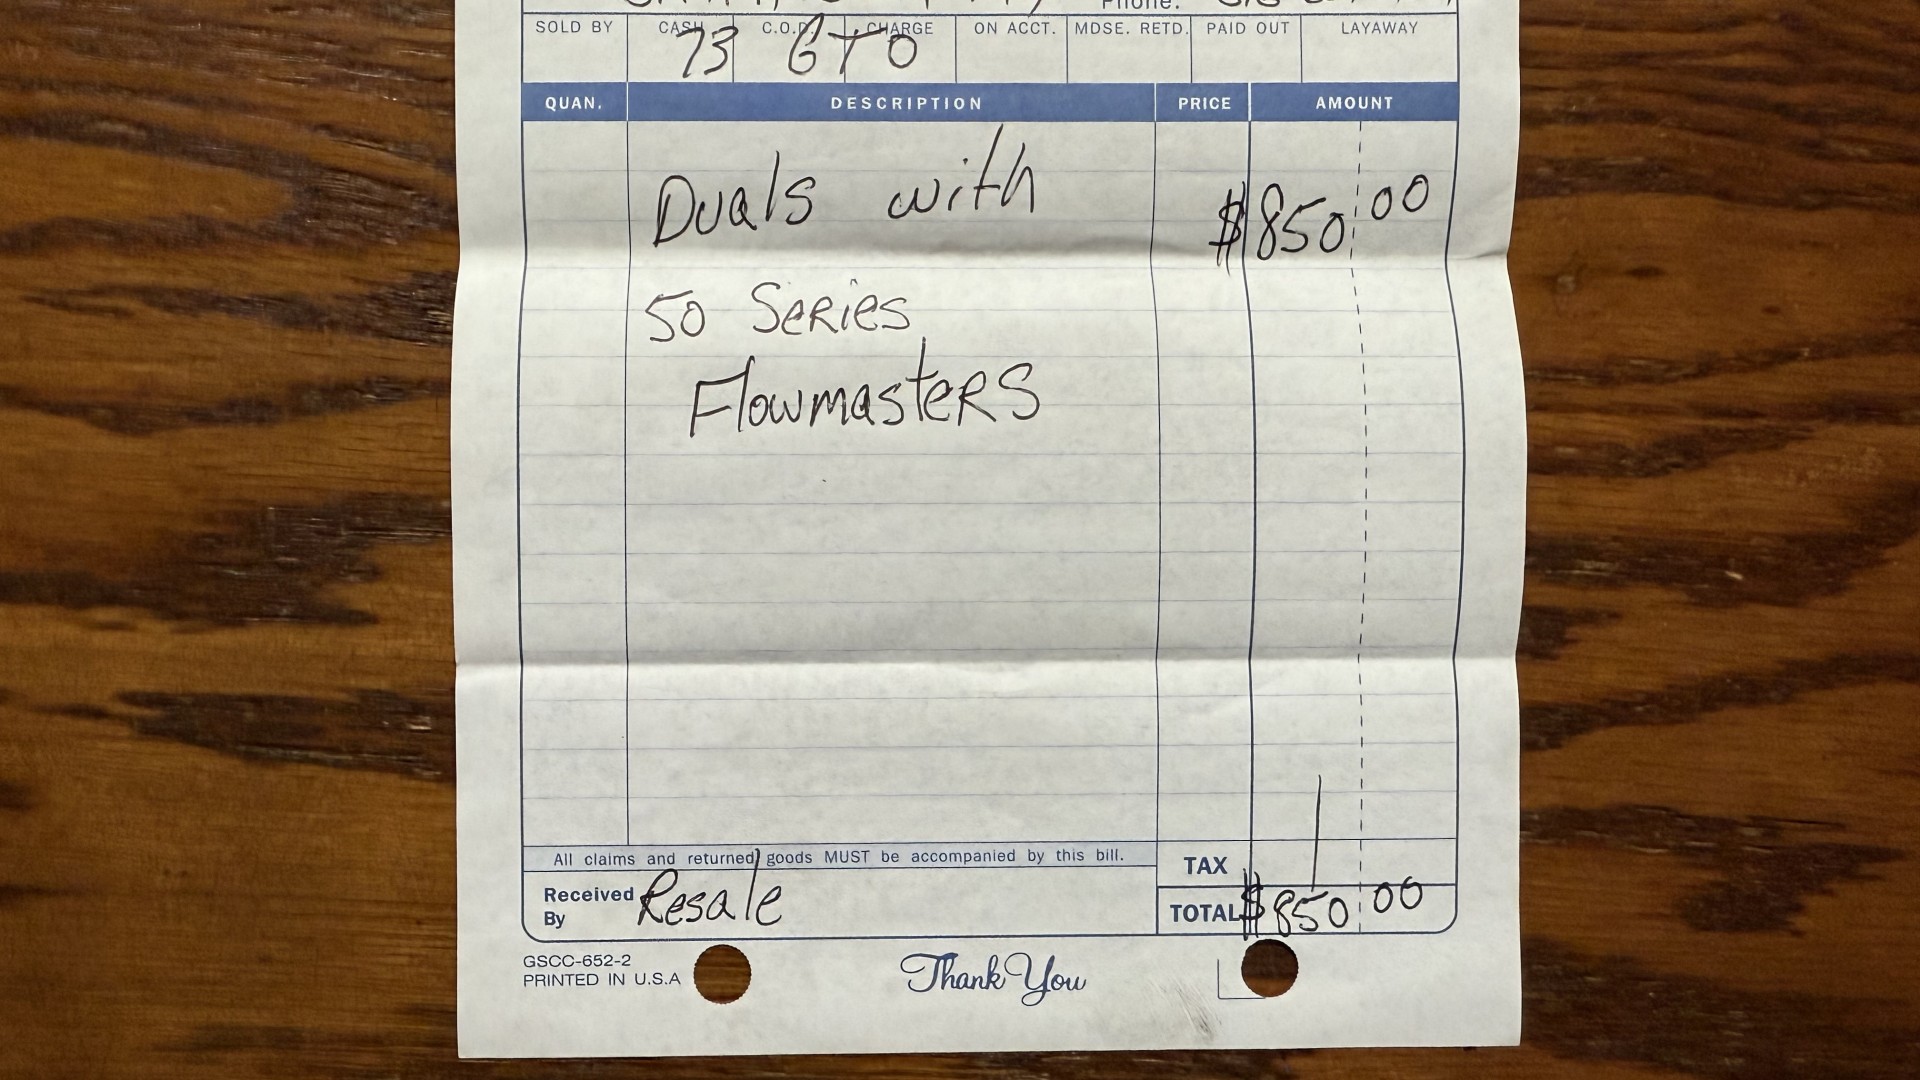 Phone:
SOLD BY CASH C.O.D. CHARGE ON ACCT. MDSE. RETD. PAID OUT LAYAWAY
73 GTO
QUAN. DESCRIPTION PRICE AMOUNT
Duals with $850.00
50 Series
Flowmasters
All claims and returned goods MUST be accompanied by this bill. TAX
Received By Resale TOTAL $850.00
GSCC-652-2
PRINTED IN U.S.A
Thank You